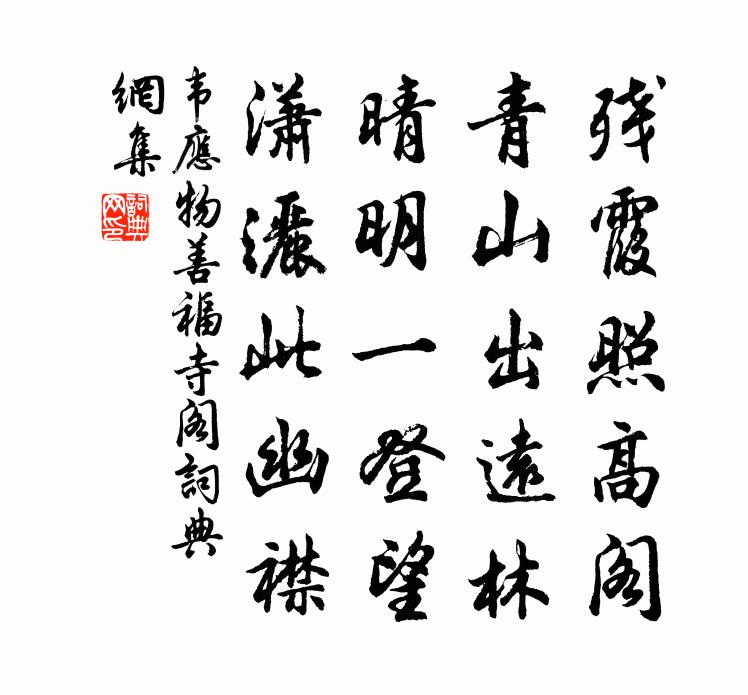 残霞照高阁
青山出遠林
晴明一登望
瀟灑此幽襟
韦應物善福寺阁詞典
網集
詞典
网印